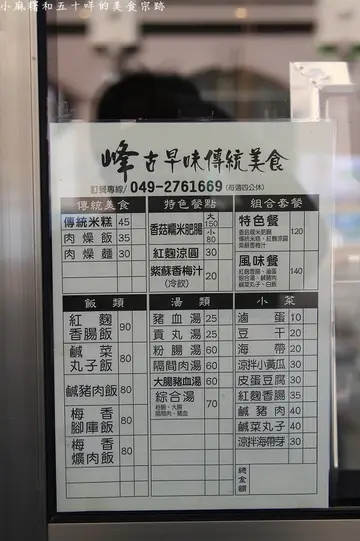 小麻糬和五十咩的美食宗跡
峰古早味傳統美食
訂餐專線/ 049-2761669 (每週四公休)
傳統美食
傳統米糕 45
肉燥飯 35
肉燥麵 30
特色餐點
香菇糯米肥腸 大150 小80
紅麴涼圓 30
紫蘇香梅汁 (冷飲) 20
組合套餐
特色餐 120
香菇糯米肥腸
傳統米糕、紅麴涼圓
紫蘇香梅汁
風味餐 140
紅麴香腸、滷蛋
綜合湯、鹹豬肉
鹹菜丸子、白飯
飯類
紅麴香腸飯 90
鹹菜丸子飯 80
鹹豬肉飯 80
梅香腳庫飯 80
梅香爌肉飯 80
湯類
豬血湯 25
貢丸湯 25
粉腸湯 60
隔間肉湯 60
大腸豬血湯 60
綜合湯 70
粉腸、大腸
隔間肉、豬血
小菜
滷蛋 10
豆干 20
海帶 20
涼拌小黃瓜 30
皮蛋豆腐 30
紅麴香腸 35
鹹豬肉 40
鹹菜丸子 40
涼拌海帶芽 30
總金額